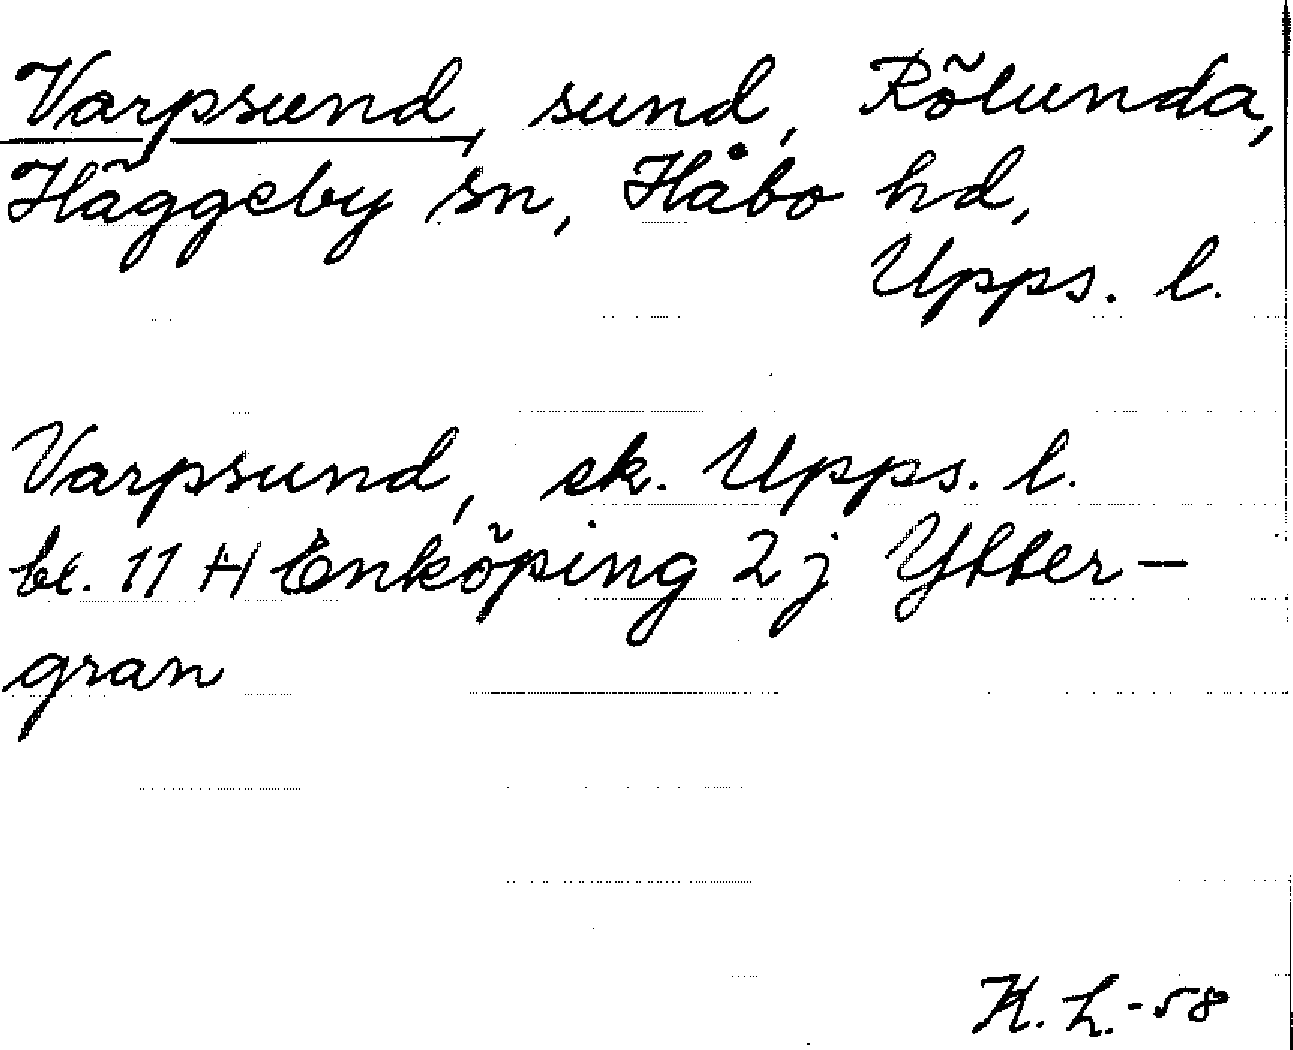 Varpsund, sund, Rölunda,
Häggeby sn, Håbo hd,
Upps. l.
Varpsund, ek. Upps. l.
bl. 11 H Enköping 2 j Ytter-
gran
K. L. -58